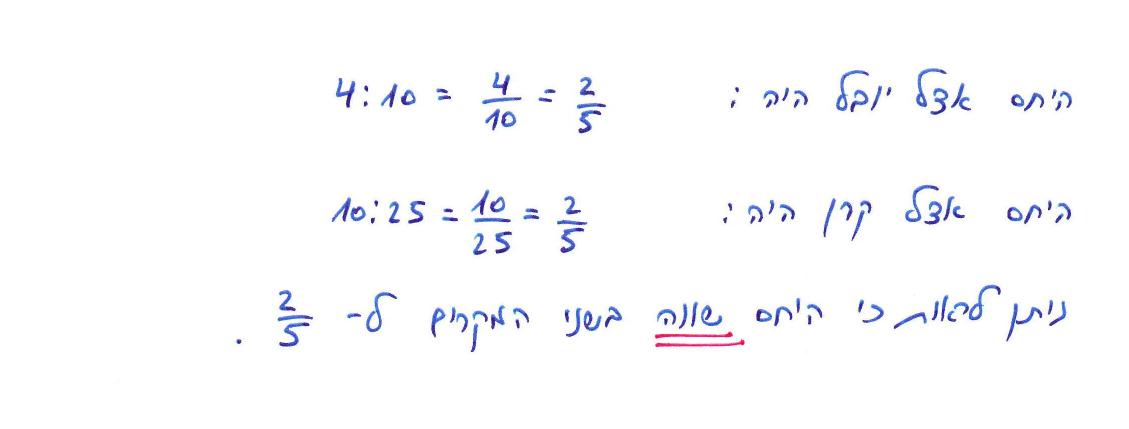 היחס אצל יובל היה : 4:10 = 4/10 = 2/5
היחס אצל קרן היה : 10:25 = 10/25 = 2/5
ניתן לראות כי היחס שווה בשני המקרים ל- 2/5 .